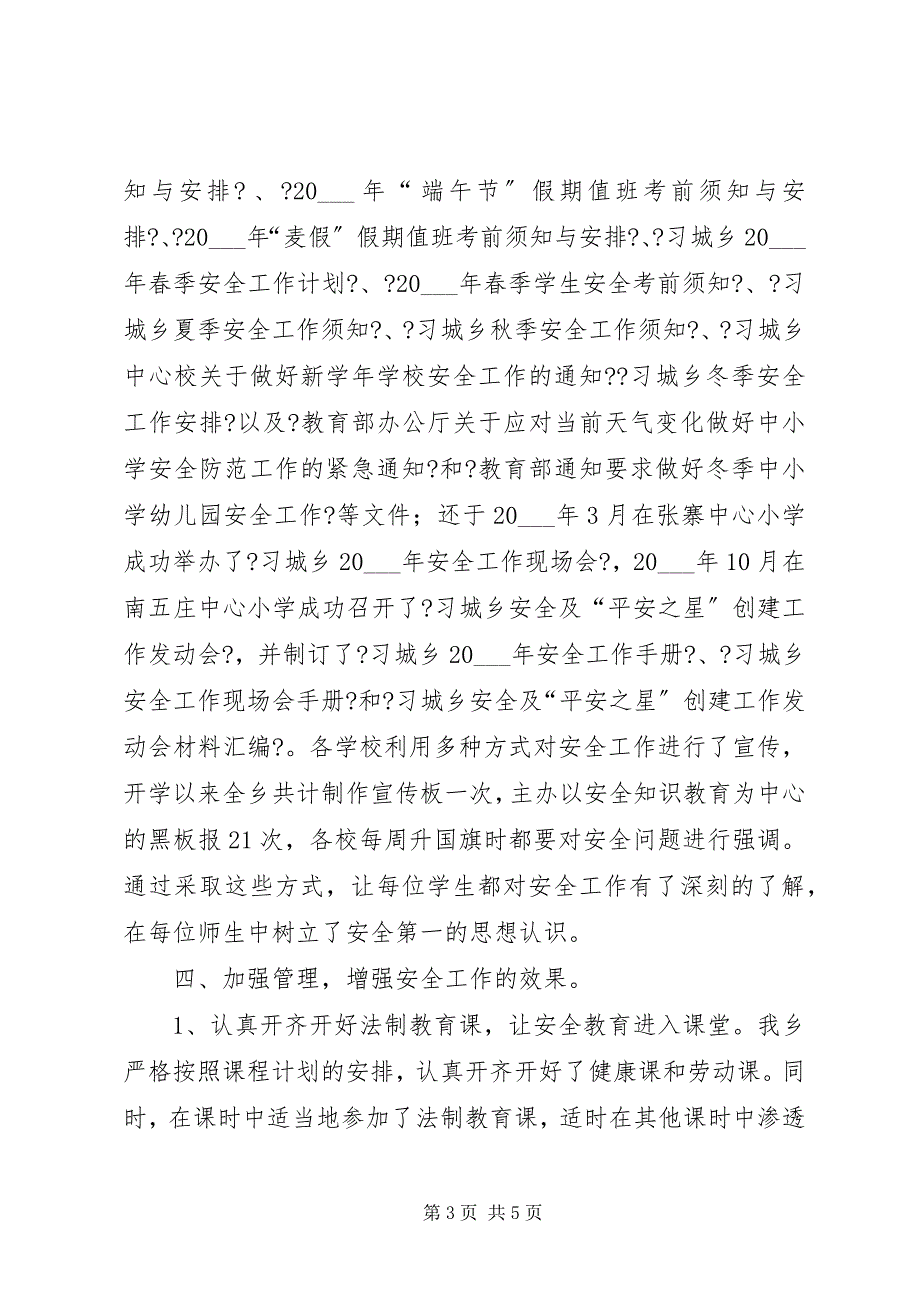 知与安排?、?20___年“端午节〞假期值班考前须知与安
排?、?20___年“麦假〞假期值班考前须知与安排?、?习城乡 20___
年春季安全工作计划?、?20___年春季学生安全考前须知?、?习
城乡夏季安全工作须知?、?习城乡秋季安全工作须知?、?习城乡
中心校关于做好新学年学校安全工作的通知??习城乡冬季安全
工作安排?以及?教育部办公厅关于应对当前天气变化做好中小
学安全防范工作的紧急通知?和?教育部通知要求做好冬季中小
学幼儿园安全工作?等文件；还于 20___年 3 月在张寨中心小学
成功举办了?习城乡 20___年安全工作现场会?，20___年 10 月在
南五庄中心小学成功召开了?习城乡安全及“平安之星〞创建工
作发动会?，并制订了?习城乡 20___年安全工作手册?、?习城乡
安全工作现场会手册?和?习城乡安全及“平安之星〞创建工作发
动会材料汇编?。各学校利用多种方式对安全工作进行了宣传，
开学以来全乡共计制作宣传板一次，主办以安全知识教育为中心
的黑板报 21 次，各校每周升国旗时都要对安全问题进行强调。
通过采取这些方式，让每位学生都对安全工作有了深刻的了解，
在每位师生中树立了安全第一的思想认识。
四、加强管理，增强安全工作的效果。
1、认真开齐开好法制教育课，让安全教育进入课堂。我乡
严格按照课程计划的安排，认真开齐开好了健康课和劳动课。同
时，在课时中适当地参加了法制教育课，适时在其他课时中渗透
第 3 页 共 5 页